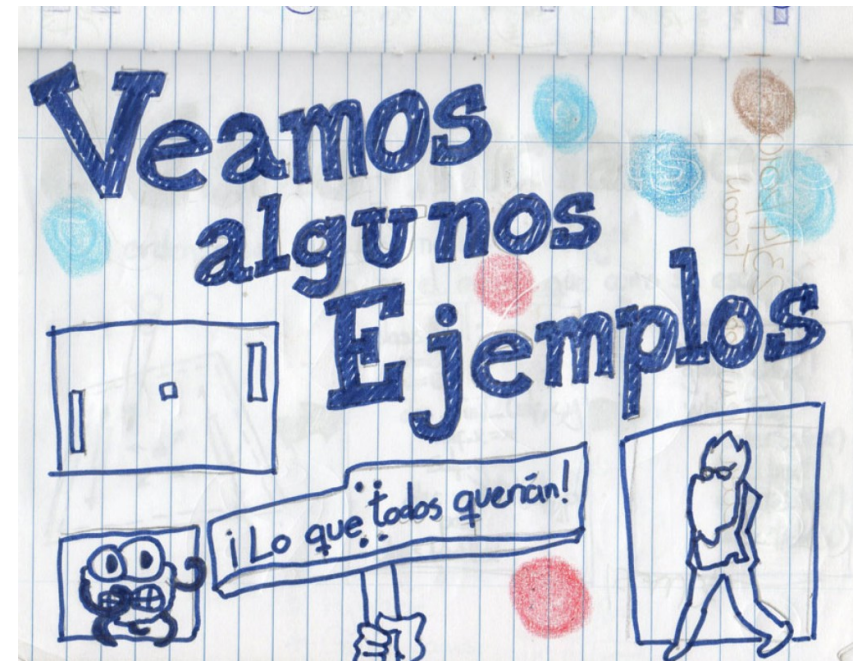 Veamos
algunos
Ejemplos
¡Lo que todos querían!